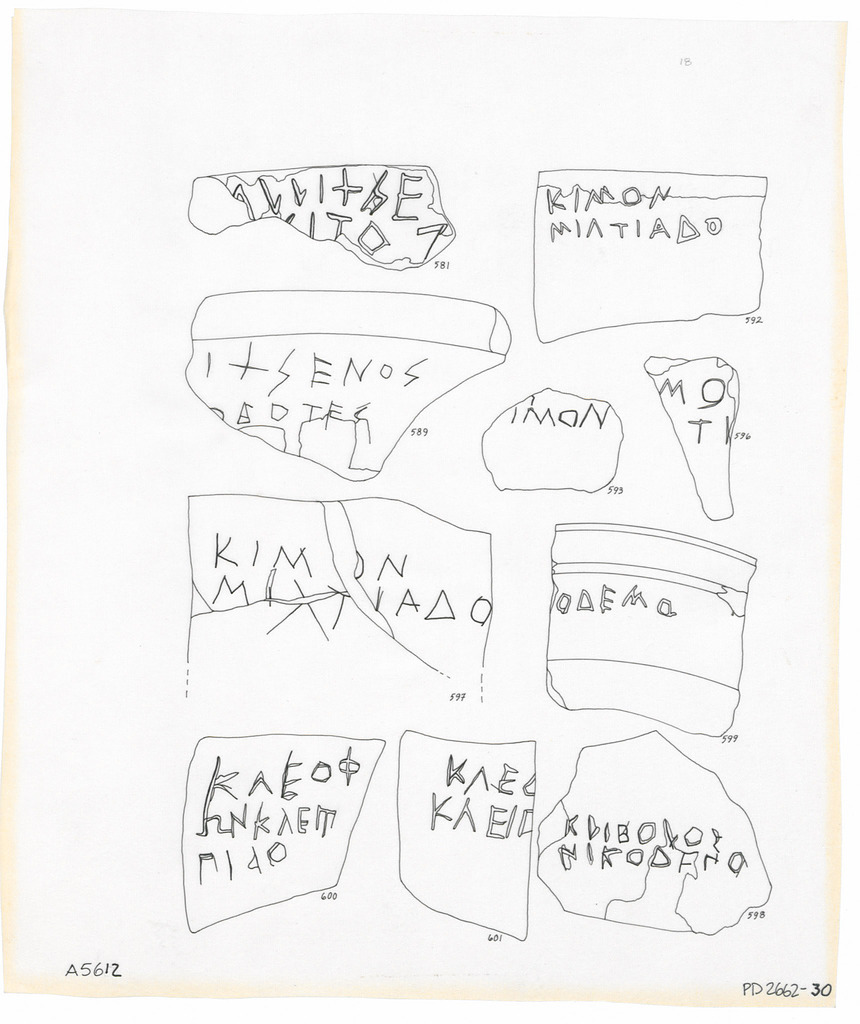 18
ΙΤΟ
581
ΚΙΜΟΝ
ΜΙΛΤΙΑΔΟ
592
Ι+ΣΕΝΟΣ
ΟΔΟΤΕΣ
589
ΙΜΟΝ
593
ΜΟ
ΤΙ
596
ΚΙΜΟΝ
ΜΙΛΤΙΑΔΟ
597
ΟΔΕΜΟ
599
ΚΛΕΟΦ
ΩΝΚΛΕΙΠ
ΠΙΔΟ
600
ΚΛΕΟ
ΚΛΕΙΠ
601
ΝΙΚΟΔΕΜΟ
598
A5612
PD 2662-30